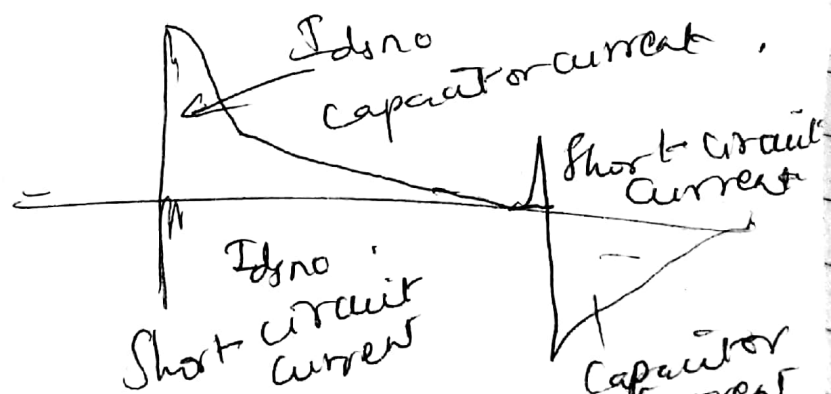 Idsno
capacitor current
Short circuit
current
Idsno
Short circuit
current
Capacitor